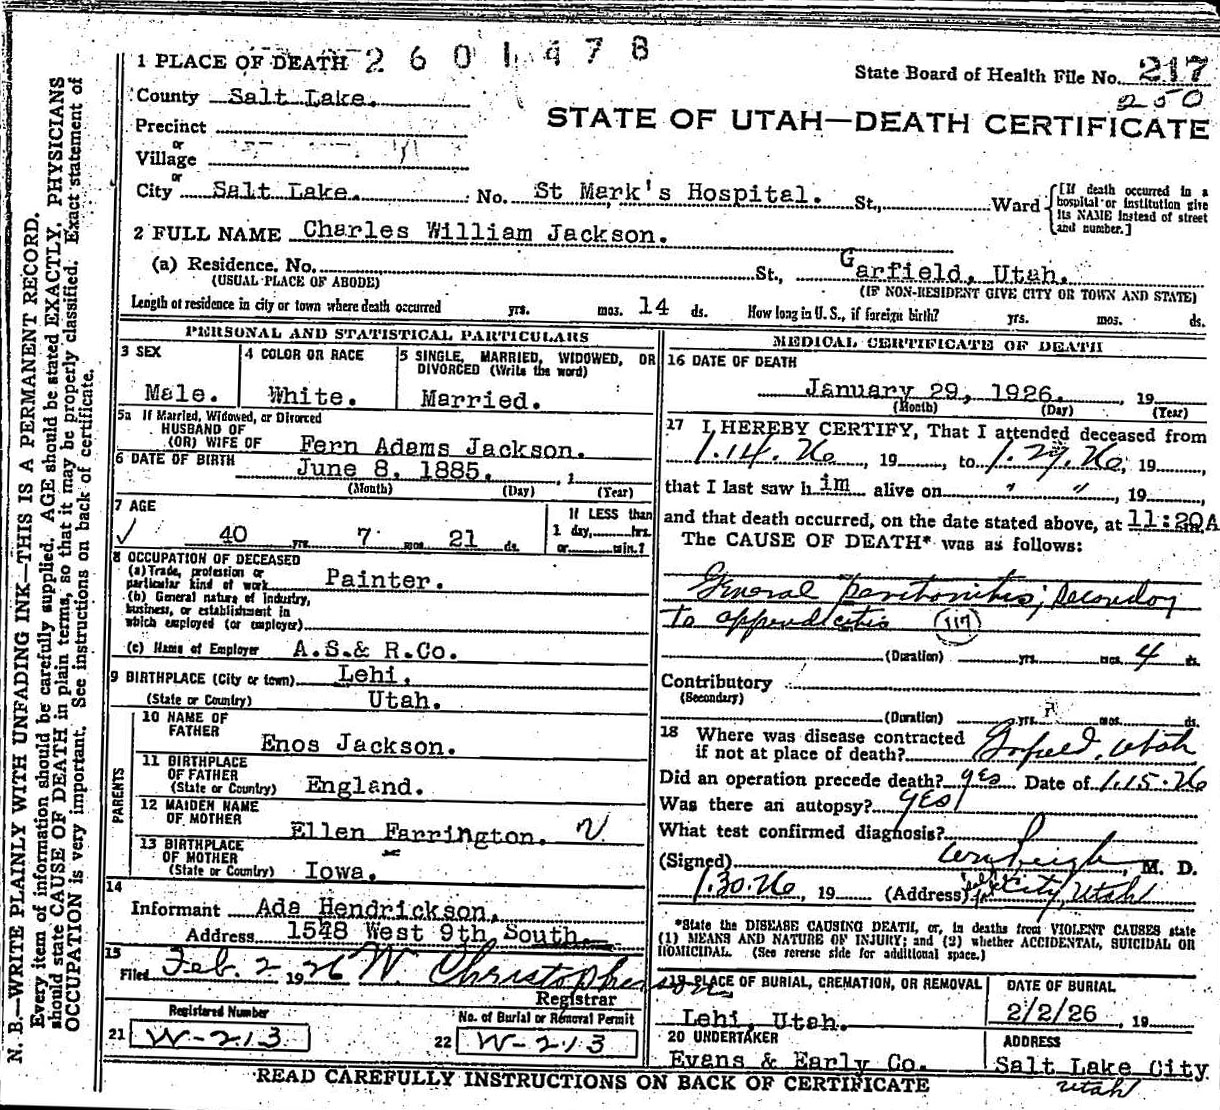 2601478
1 PLACE OF DEATH
State Board of Health File No. 217
250
County Salt Lake.
STATE OF UTAH—DEATH CERTIFICATE
Precinct
or
Village
or
City Salt Lake. No. St Mark's Hospital. St., Ward
[If death occurred in a hospital or institution give its NAME instead of street and number.]
2 FULL NAME Charles William Jackson.
(a) Residence. No. St., Garfield, Utah.
(USUAL PLACE OF ABODE) (IF NON-RESIDENT GIVE CITY OR TOWN AND STATE)
Length of residence in city or town where death occurred yrs. mos. 14 ds. How long in U. S., if foreign birth? yrs. mos. ds.
PERSONAL AND STATISTICAL PARTICULARS
3 SEX
Male.
4 COLOR OR RACE
White.
5 SINGLE, MARRIED, WIDOWED, OR
DIVORCED (Write the word)
Married.
5a If Married, Widowed, or Divorced
HUSBAND OF
(OR) WIFE OF Fern Adams Jackson.
6 DATE OF BIRTH June 8, 1885. , 1
(Month) (Day) (Year)
7 AGE
40 yrs. 7 mos. 21 ds.
If LESS than
1 day, hrs.
or min.?
8 OCCUPATION OF DECEASED
(a) Trade, profession or
particular kind of work Painter.
(b) General nature of industry,
business, or establishment in
which employed (or employer)
(c) Name of Employer A.S.& R.Co.
9 BIRTHPLACE (City or town) Lehi,
(State or Country) Utah.
PARENTS
10 NAME OF
FATHER Enos Jackson.
11 BIRTHPLACE
OF FATHER
(State or Country) England.
12 MAIDEN NAME
OF MOTHER Ellen Farrington.
13 BIRTHPLACE
OF MOTHER
(State or Country) Iowa.
14
Informant Ada Hendrickson,
Address 1548 West 9th South
15
Filed Feb. 2 1926 W. Christophenson
Registrar
Registered Number
21 W-213
No. of Burial or Removal Permit
22 W-213
MEDICAL CERTIFICATE OF DEATH
16 DATE OF DEATH
January 29, 1926. , 19
(Month) (Day) (Year)
17 I HEREBY CERTIFY, That I attended deceased from
1.14.26, 19, to 1.29.26, 19,
that I last saw him alive on " ", 19,
and that death occurred, on the date stated above, at 11:20A m.
The CAUSE OF DEATH* was as follows:
General peritonitis; secondary
to appendicitis (117)
(Duration) yrs. mos. 4 ds.
Contributory
(Secondary)
(Duration) yrs. mos. ds.
18 Where was disease contracted
if not at place of death? Garfield, Utah
Did an operation precede death? yes Date of 1.15.26
Was there an autopsy? yes
What test confirmed diagnosis?
(Signed) M. D.
1.30.26, 19 (Address) City, Utah
*State the DISEASE CAUSING DEATH, or, in deaths from VIOLENT CAUSES state
(1) MEANS AND NATURE OF INJURY; and (2) whether ACCIDENTAL, SUICIDAL OR
HOMICIDAL. (See reverse side for additional space.)
19 PLACE OF BURIAL, CREMATION, OR REMOVAL
Lehi, Utah.
DATE OF BURIAL
2/2/26, 19
20 UNDERTAKER
Evans & Early Co.
ADDRESS
Salt Lake City
Utah
READ CAREFULLY INSTRUCTIONS ON BACK OF CERTIFICATE
N. B.—WRITE PLAINLY WITH UNFADING INK—THIS IS A PERMANENT RECORD.
Every item of information should be carefully supplied. AGE should be stated EXACTLY. PHYSICIANS
should state CAUSE OF DEATH in plain terms, so that it may be properly classified. Exact statement of
OCCUPATION is very important. See instructions on back of certificate.